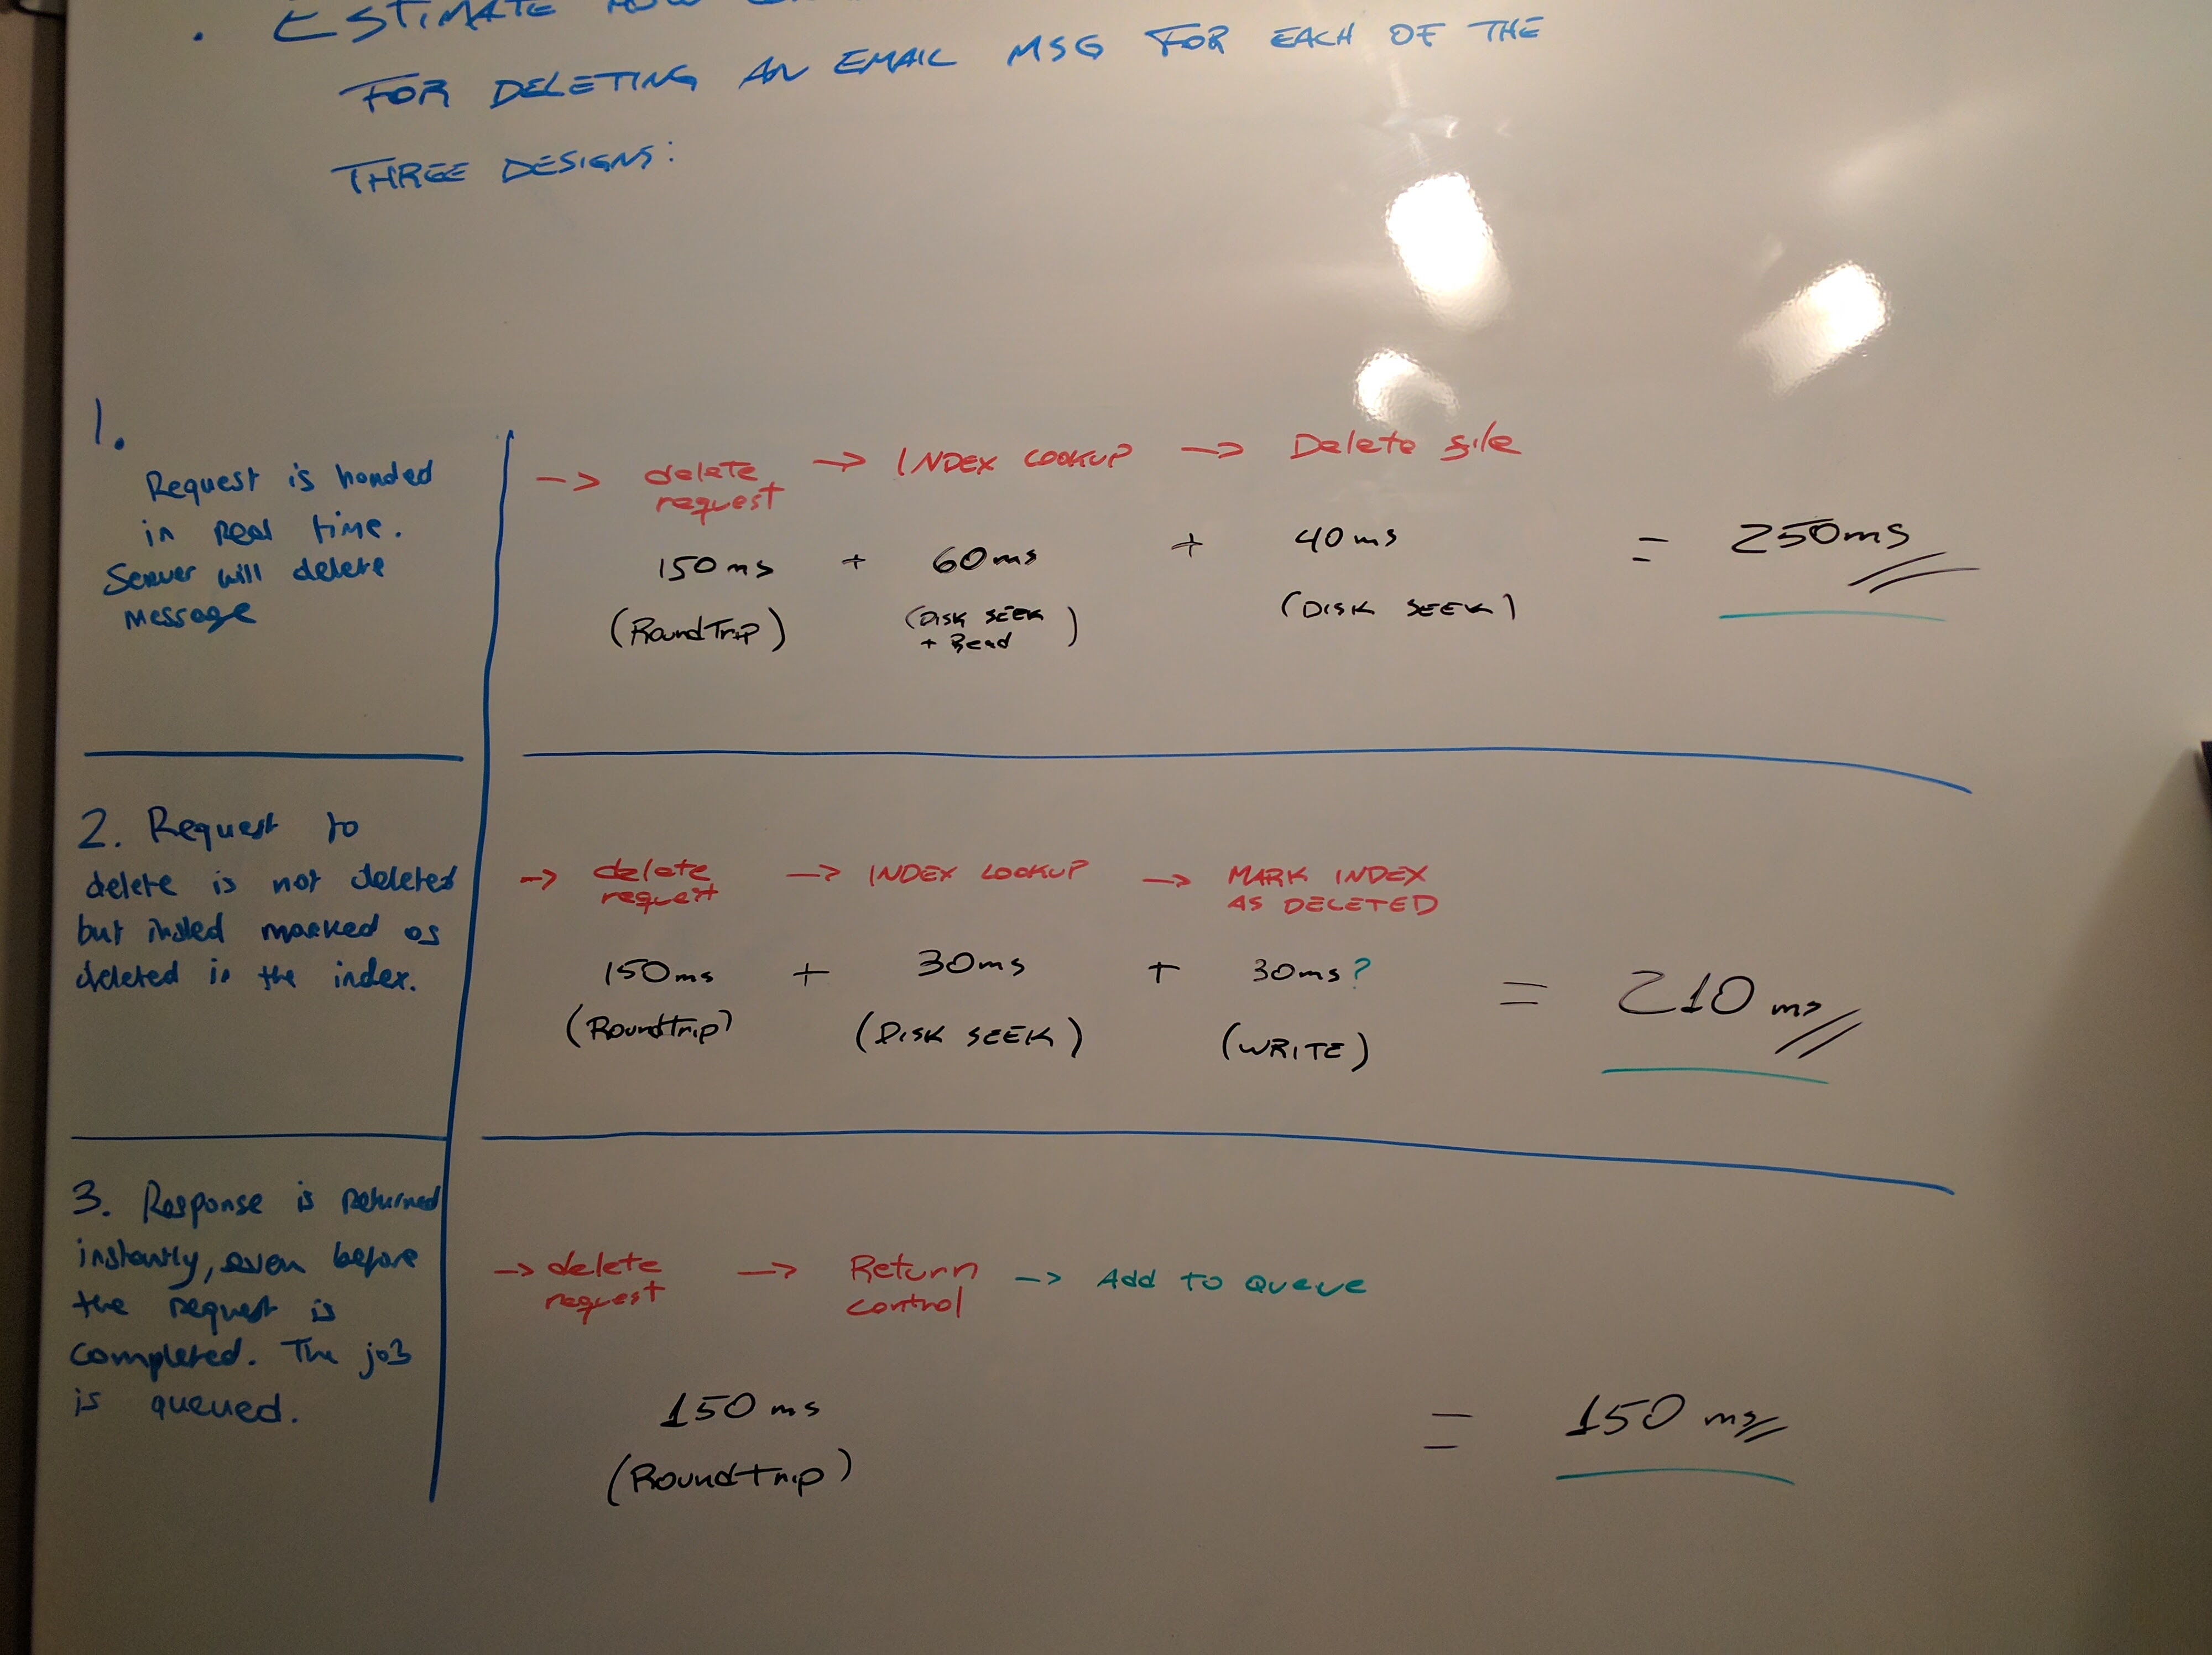 . ESTIMATE
FOR DELETING AN EMAIL MSG FOR EACH OF THE
THREE DESIGNS:
1.
Request is handed
in real time.
Server will delete
message
-> delete -> INDEX LOOKUP -> Delete file
request
150ms + 60ms + 40ms = 250ms
(RoundTrip) (DISK SEEK (DISK SEEK)
+ Read)
2. Request to
delete is not deleted
but insted marked as
deleted in the index.
-> delete -> INDEX LOOKUP -> MARK INDEX
request AS DELETED
150ms + 30ms + 30ms? = 210ms
(RoundTrip) (DISK SEEK) (WRITE)
3. Response is returned
instantly, even before
the request is
completed. The job
is queued.
-> delete -> Return -> Add to Queue
request control
150ms = 150ms
(RoundTrip)